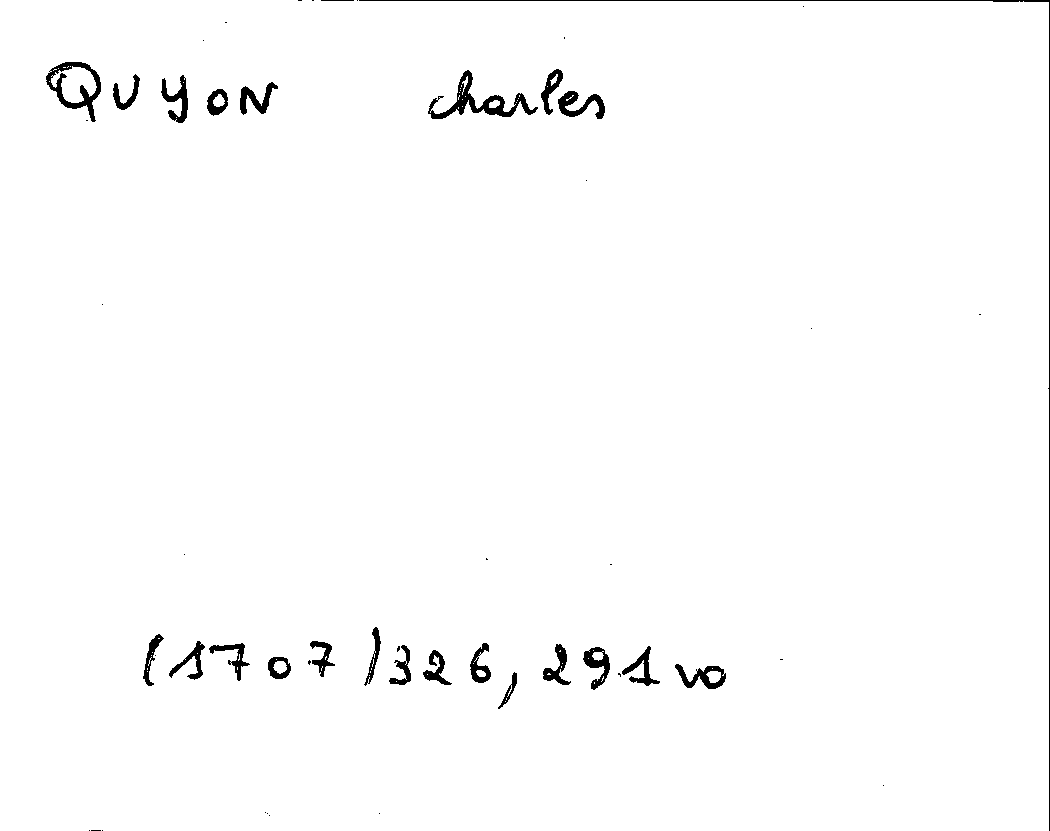 QUYON charles
(1707)326, 291vo